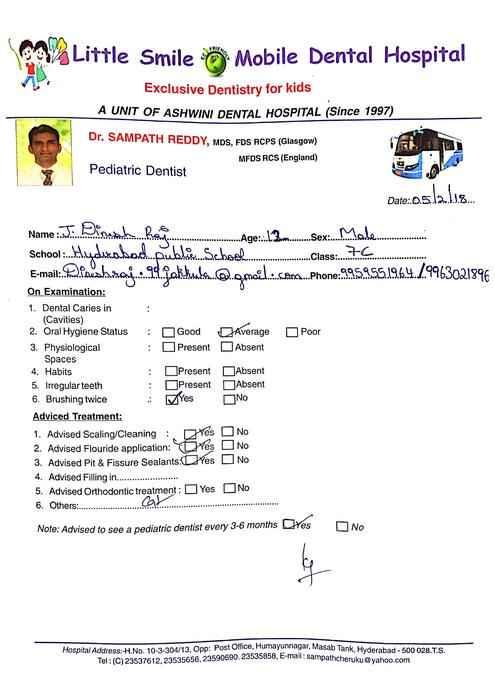 Little Smile ECO FRIENDLY Mobile Dental Hospital
Exclusive Dentistry for kids
A UNIT OF ASHWINI DENTAL HOSPITAL (Since 1997)
Dr. SAMPATH REDDY, MDS, FDS RCPS (Glasgow)
MFDS RCS (England)
Pediatric Dentist
Date: 05/2/18
Name: J. Dinesh Raj Age: 12 Sex: Male
School: Hyderabad public School Class: 7-C
E-mail: Dineshraj.99jakkula@gmail.com Phone: 9959551964/9963021896
On Examination:
1. Dental Caries in :
(Cavities)
2. Oral Hygiene Status : Good Average Poor
3. Physiological : Present Absent
Spaces
4. Habits : Present Absent
5. Irregular teeth : Present Absent
6. Brushing twice : Yes No
Adviced Treatment:
1. Advised Scaling/Cleaning : Yes No
2. Advised Flouride application: Yes No
3. Advised Pit & Fissure Sealants: Yes No
4. Advised Filling in
5. Advised Orthodontic treatment : Yes No
6. Others:
Note: Advised to see a pediatric dentist every 3-6 months Yes No
Hospital Address:-H.No. 10-3-304/13, Opp: Post Office, Humayunnagar, Masab Tank, Hyderabad - 500 028.T.S.
Tel : (C) 23537612, 23535656, 23590690, 23535858, E-mail : sampathcheruku@yahoo.com